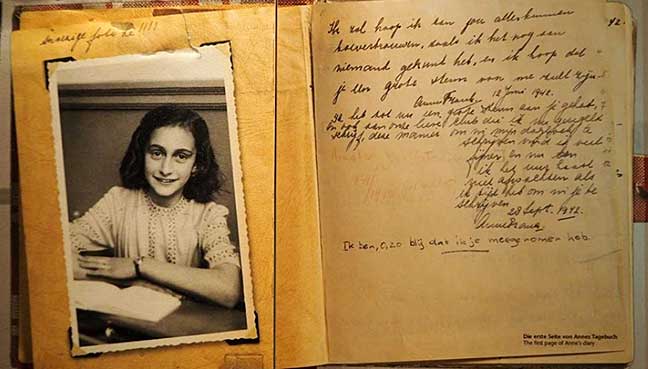 snoezige foto hè !!!!
Ik zal hoop ik aan jou alles kunnen
toevertrouwen, zoals ik het nog aan
niemand gekund heb, en ik hoop dat
je een grote steun voor me zult zijn.
Anne Frank. 12 Juni 1942.
Ik heb tot nu een grote steun aan je gehad,
en ook aan onze lieve club die ik nu geregeld
schrijf, deze manier om in mijn dagboek te
schrijven vind ik veel
fijner en nu kan
ik het uur haast
niet afwachten als
ik tijd heb om in je te
schrijven
28 Sept. 1942.
Anne Frank.
Ik ben, o, zo blij dat ik je meegenomen heb
Die erste Seite von Annes Tagebuch
The first page of Anne's diary